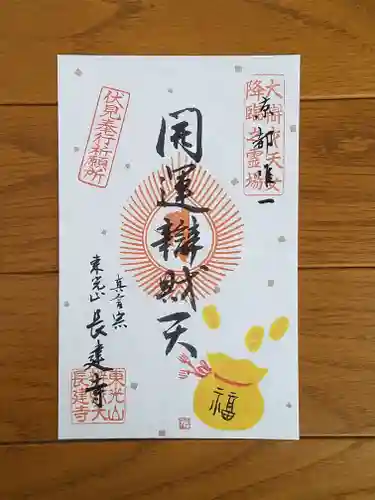 大辯財天女
降臨の霊場
京都唯一
伏見奉行祈願所
開運辯財天
真言宗
東光山 長建寺
東光山
辯財天
長建寺
福